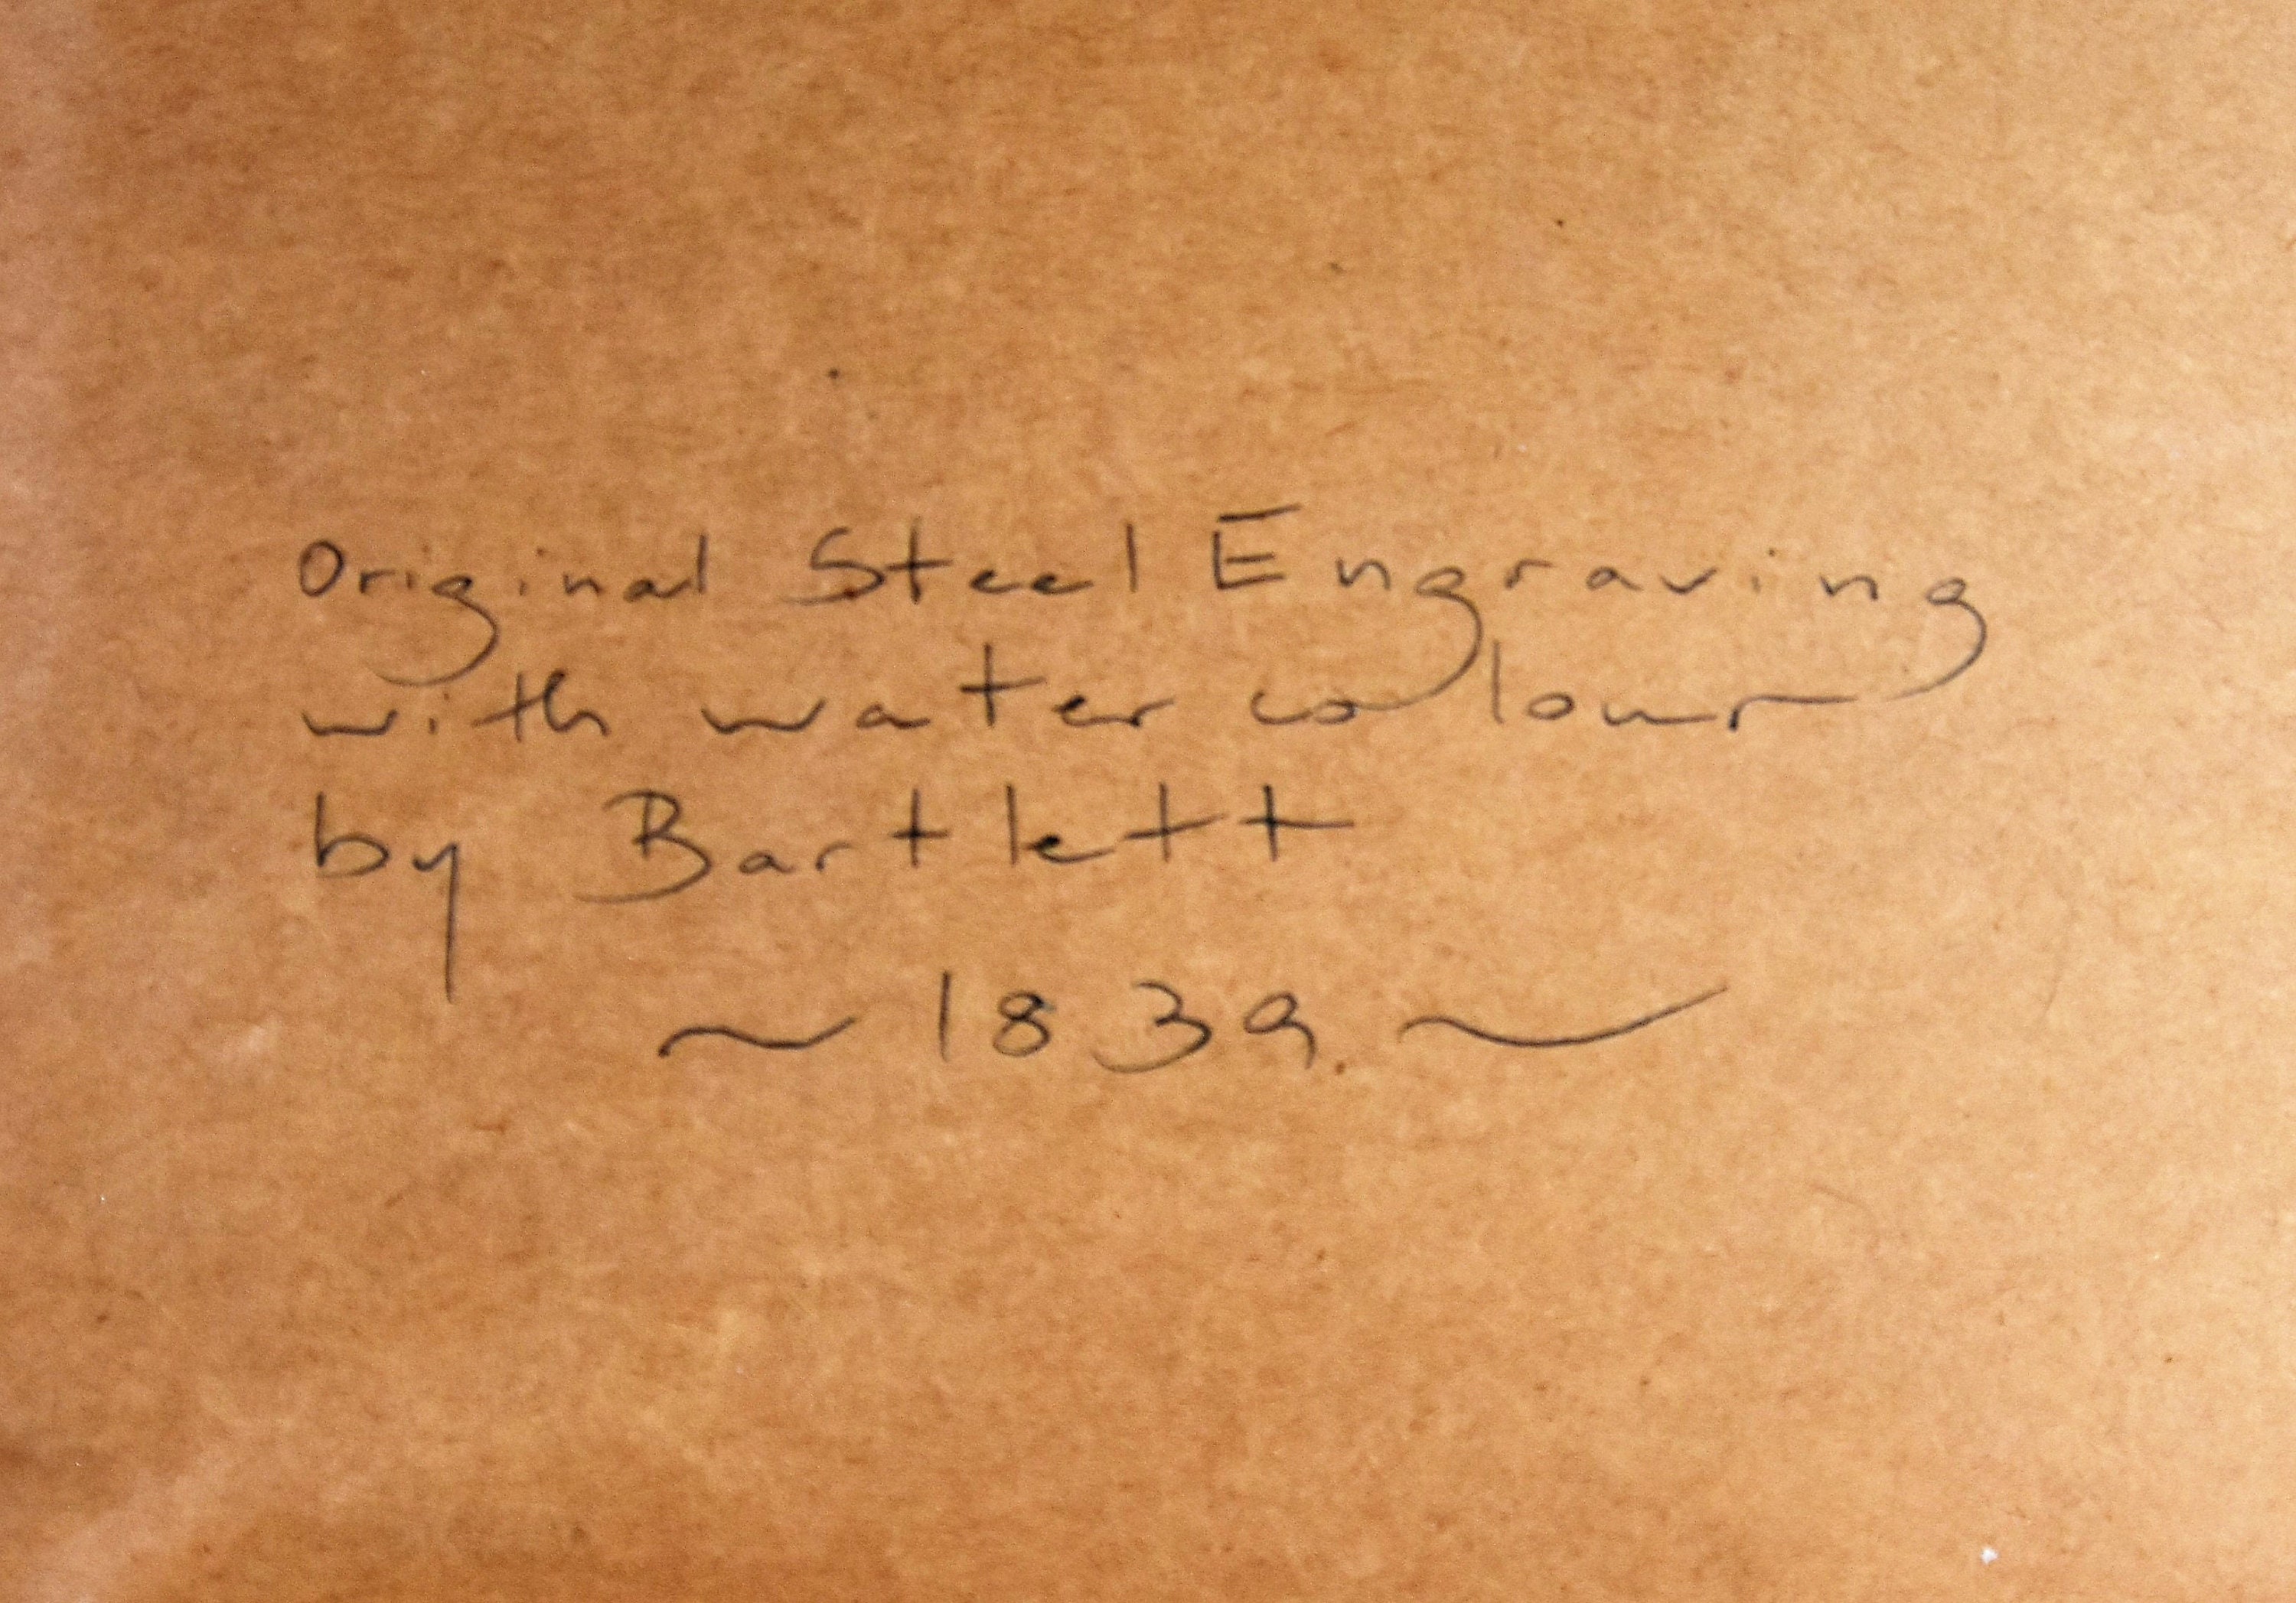 Original Steel Engraving
with water colour
by Bartlett
~ 1839 ~